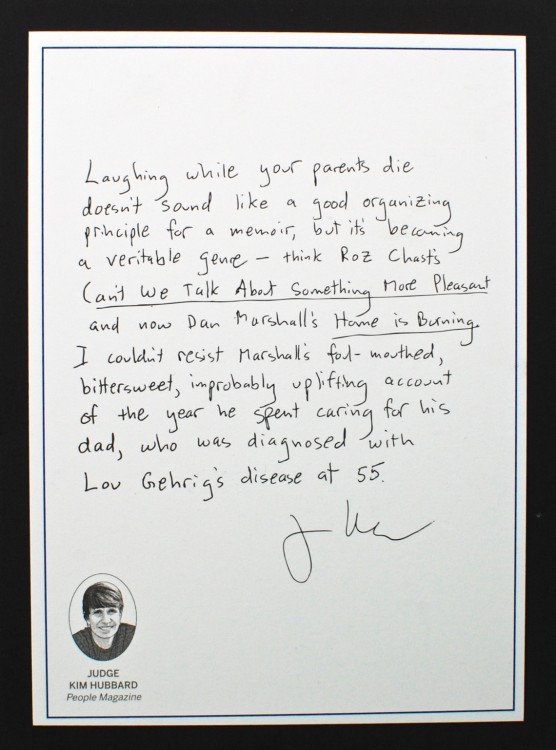 Laughing while your parents die
doesn't sound like a good organizing
principle for a memoir, but it's becoming
a veritable genre – think Roz Chast's
Can't We Talk About Something More Pleasant
and now Dan Marshall's Home is Burning.
I couldn't resist Marshall's foul-mouthed,
bittersweet, improbably uplifting account
of the year he spent caring for his
dad, who was diagnosed with
Lou Gehrig's disease at 55.
JUDGE
KIM HUBBARD
People Magazine